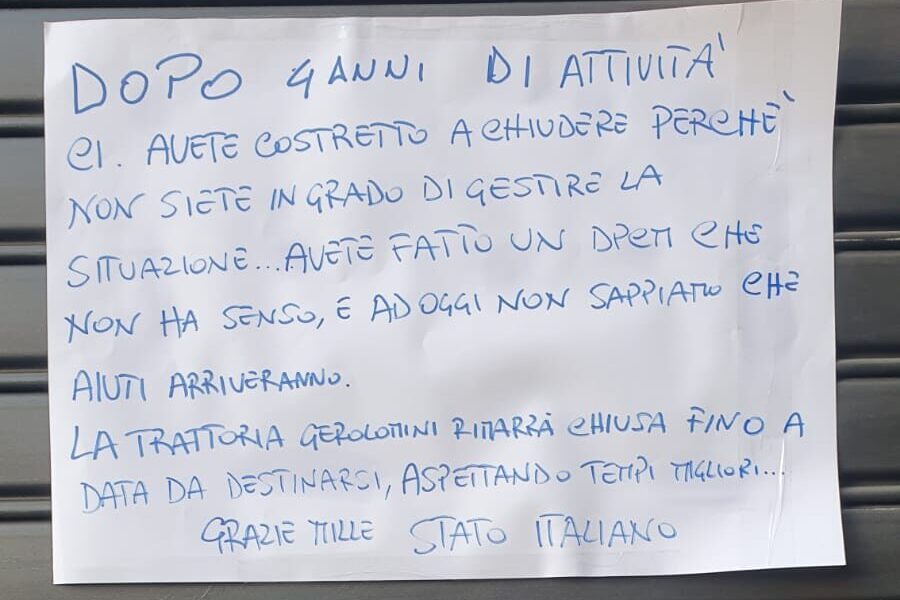 DOPO 4 ANNI DI ATTIVITA'
CI. AVETE COSTRETTO A CHIUDERE PERCHE'
NON SIETE IN GRADO DI GESTIRE LA
SITUAZIONE...AVETE FATTO UN DPCM CHE
NON HA SENSO, E AD OGGI NON SAPPIAMO CHE
AIUTI ARRIVERANNO.
LA TRATTORIA GEROLOMINI RIMARRÀ CHIUSA FINO A
DATA DA DESTINARSI, ASPETTANDO TEMPI MIGLIORI...
GRAZIE MILLE STATO ITALIANO